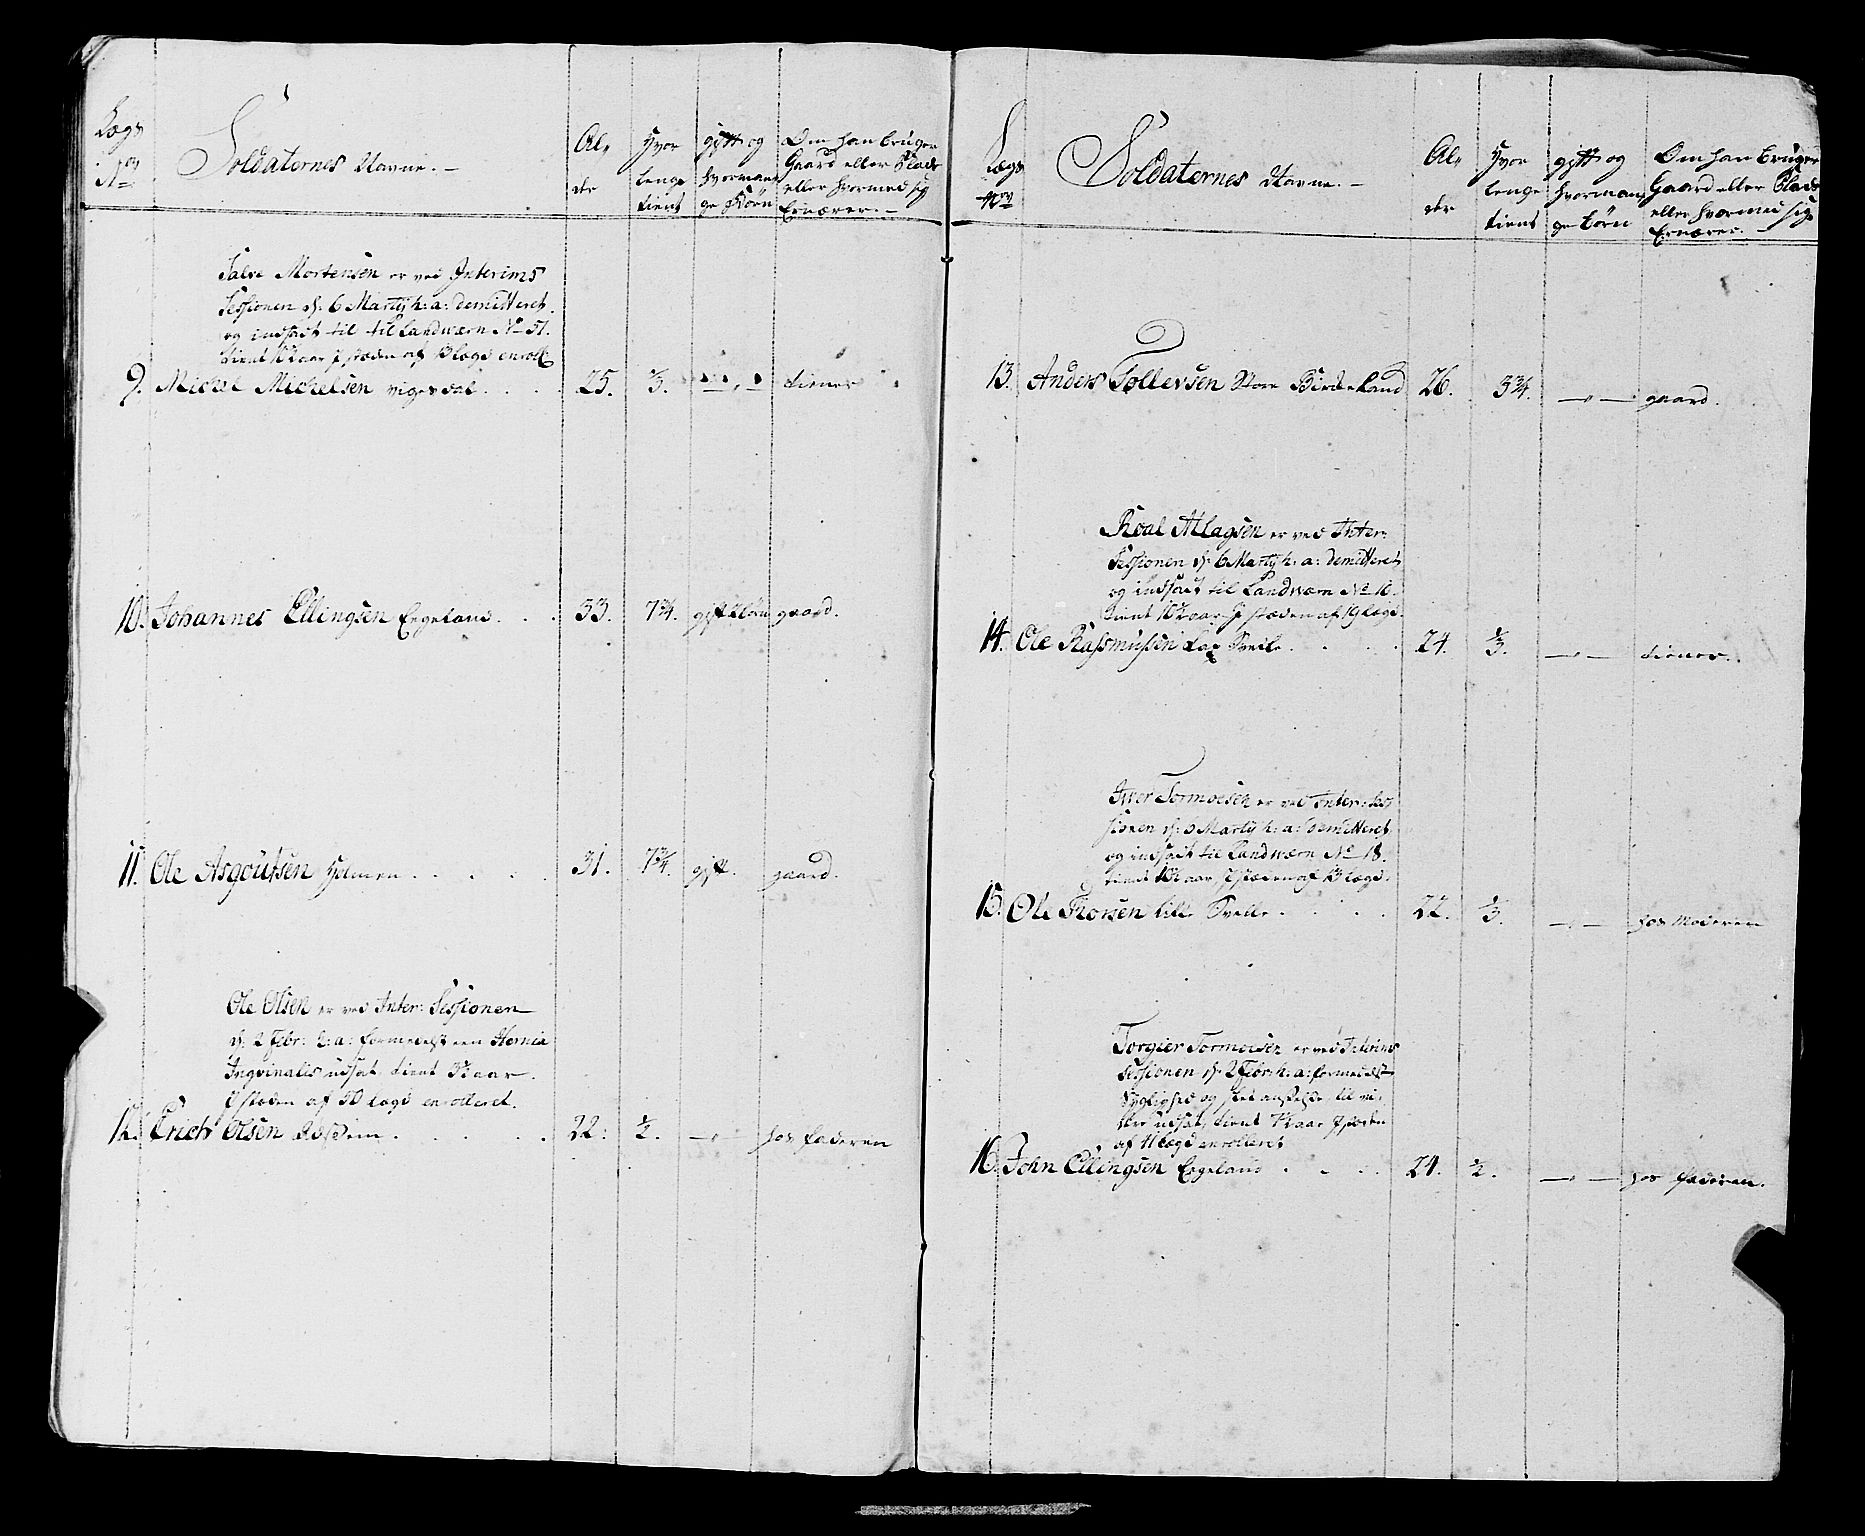 Lægs No
Soldaternes Navne. —
Alder
Hvor lenge tient
gift og hvormange Börn
Om han bruger Gaard eller Plads eller hvormed sig Ernærer. —
Salve Mortensen er ved Interims
Sessionen d: 6 Martij h: a: demitteret
og indsadt til til Landværn No 51.
tient 10 aar I stæden af 13 lægd enroll:
9. Michel Michelsen vigesdal. . . . 25. ⅓. — " — tiener
10. Johannes Ellingsen Eegeland. . . 33. 7¾. gift 2 börn gaard.
11. Ole Asgoutsen Holmen . . . . . 31. 7¾. gift. gaard.
Ole Olsen er ved Inter: Sessionen
d: 2 Febr: h: a: formedelst een Hernia
Ingvinalis udsat, tient aar.
I stæden af 50 lægd enrolleret.
12. Erich Olsen . . . . . 22. ½. — " — hos faderen
Lægs No
Soldaternes Navne. —
Alder
Hvor lenge tient
gift og hvormange börn
Om han bruger Gaard eller Plads eller hvormed sig Ernærer. —
13. Anders Tollevsen Store Birkeland 26. 3¾. — " — gaard.
Roal Atlagsen er ved Inter:
Sessionen d: 6 Martij h: a: demitteret
og indsadt til Landværn No 16.
tient aar I stæden af 19 lægd.
14. Ole Rassmussen Sveile . . . . 24. ⅓. — " — tiener.
Iver Tormoesen er ved Inter: Ses
sionen d: 6 Martij h: a: demitteret
og indsadt til Landværn No 18.
tient aar, I stæden af 13 lægd.
15. Ole Thorsen lille Svelle . . . . 22. ⅓. — " — hos Moderen
Torgier Tormoesen er ved Interims
Sessionen d: 2 Febr: h: a: formedelst
Syglighed og
udsat, tient aar I stæden
af 11 lægd enrolleret
16. John Ellingsen Eegeland . . . . 24. ½. — " — hos faderen.